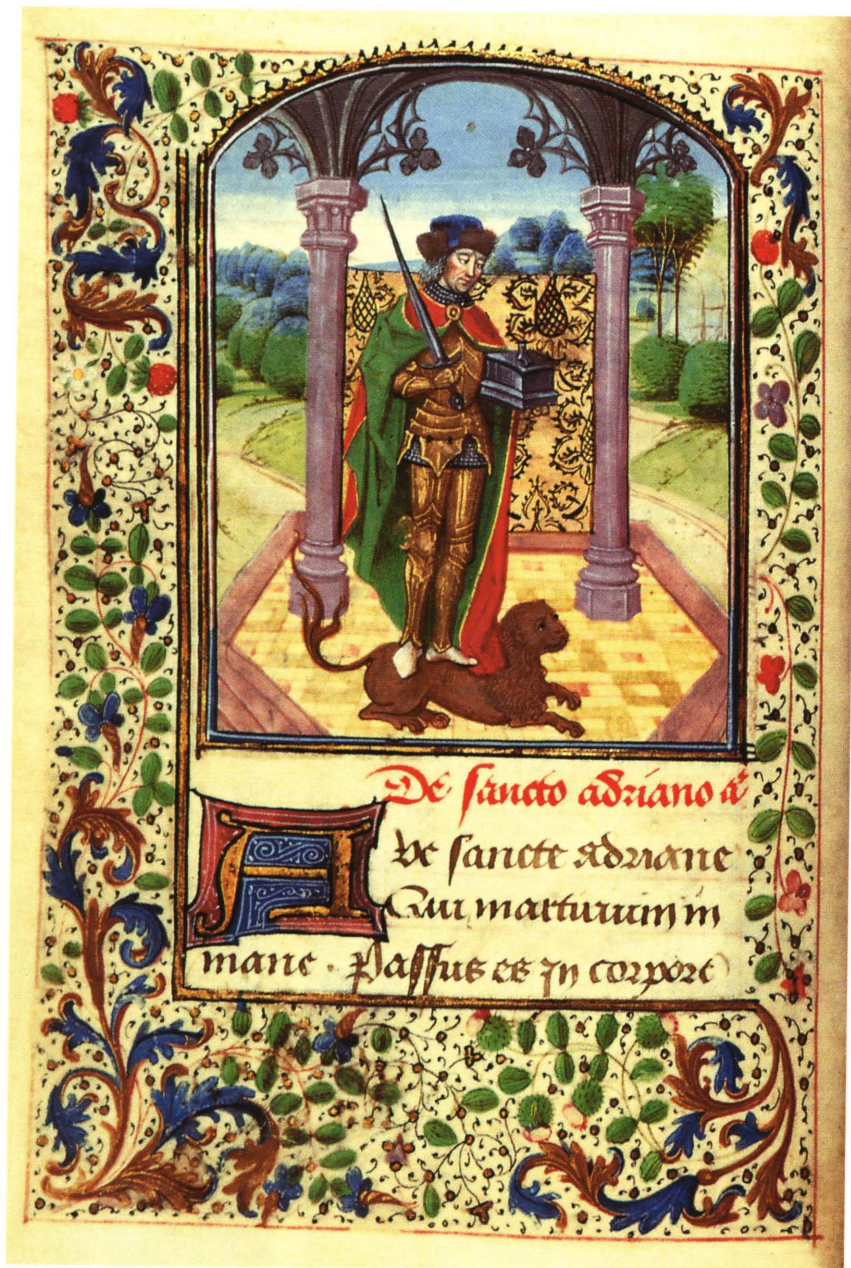 De sancto adriano aͬ
Ave sancte adriane
Qui martirium in
mane . Passus es in corpore